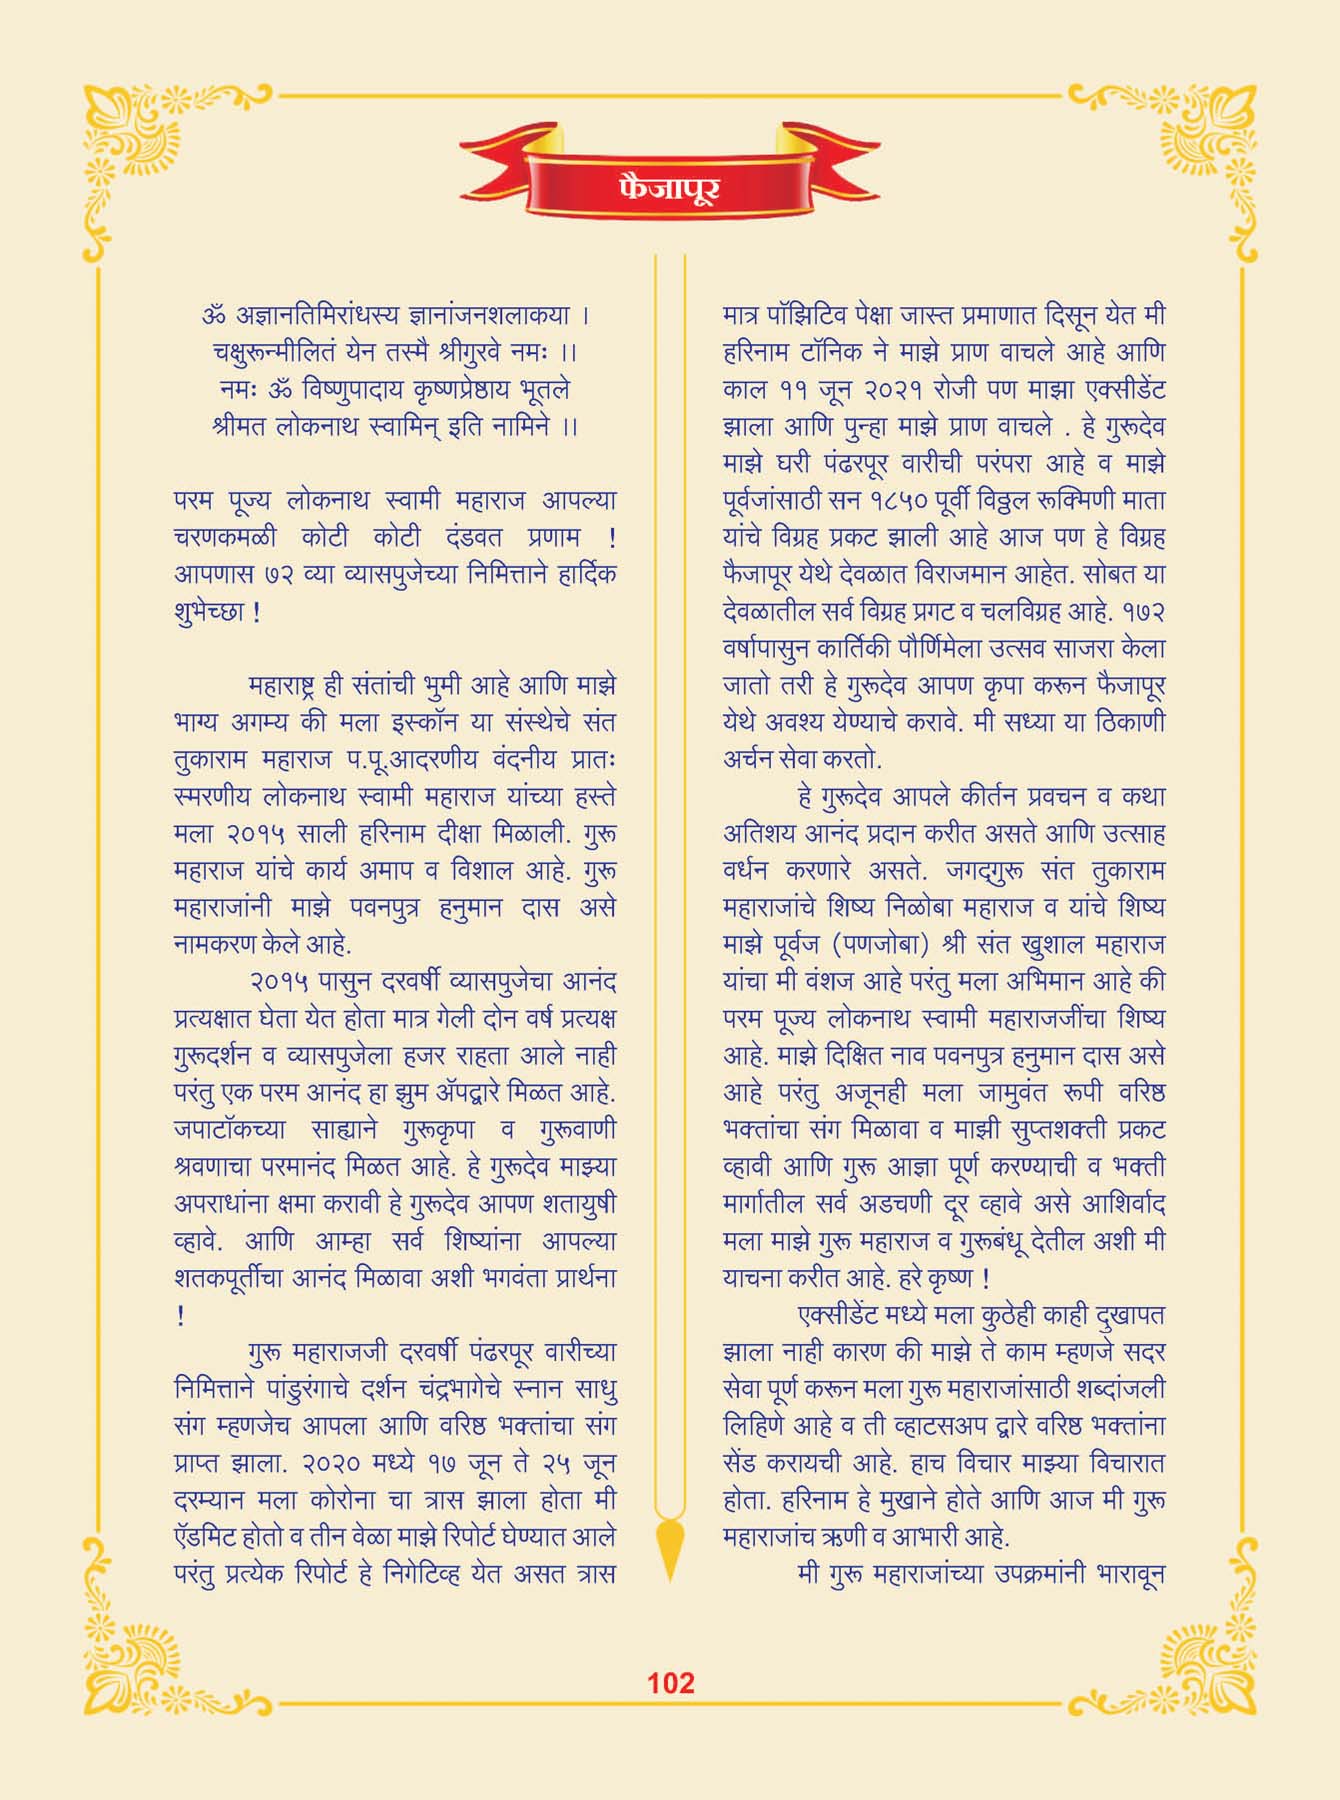 फैजापूर
ॐ अज्ञानतिमिरांधस्य ज्ञानांजनशलाकया ।
चक्षुरून्मीलितं येन तस्मै श्रीगुरवे नमः ।।
नमः ॐ विष्णुपादाय कृष्णप्रेष्ठाय भूतले
श्रीमत लोकनाथ स्वामिन् इति नामिने ।।
परम पूज्य लोकनाथ स्वामी महाराज आपल्या
चरणकमळी कोटी कोटी दंडवत प्रणाम !
आपणास ७२ व्या व्यासपुजेच्या निमित्ताने हार्दिक
शुभेच्छा !
महाराष्ट्र ही संतांची भुमी आहे आणि माझे
भाग्य अगम्य की मला इस्कॉन या संस्थेचे संत
तुकाराम महाराज प.पू.आदरणीय वंदनीय प्रातः
स्मरणीय लोकनाथ स्वामी महाराज यांच्या हस्ते
मला २०१५ साली हरिनाम दीक्षा मिळाली. गुरू
महाराज यांचे कार्य अमाप व विशाल आहे. गुरू
महाराजांनी माझे पवनपुत्र हनुमान दास असे
नामकरण केले आहे.
२०१५ पासुन दरवर्षी व्यासपुजेचा आनंद
प्रत्यक्षात घेता येत होता मात्र गेली दोन वर्ष प्रत्यक्ष
गुरूदर्शन व व्यासपुजेला हजर राहता आले नाही
परंतु एक परम आनंद हा झुम ॲपद्वारे मिळत आहे.
जपाटॉकच्या साह्याने गुरूकृपा व गुरूवाणी
श्रवणाचा परमानंद मिळत आहे. हे गुरूदेव माझ्या
अपराधांना क्षमा करावी हे गुरूदेव आपण शतायुषी
व्हावे. आणि आम्हा सर्व शिष्यांना आपल्या
शतकपूर्तीचा आनंद मिळावा अशी भगवंता प्रार्थना
!
गुरू महाराजजी दरवर्षी पंढरपूर वारीच्या
निमित्ताने पांडुरंगाचे दर्शन चंद्रभागेचे स्नान साधु
संग म्हणजेच आपला आणि वरिष्ठ भक्तांचा संग
प्राप्त झाला. २०२० मध्ये १७ जून ते २५ जून
दरम्यान मला कोरोना चा त्रास झाला होता मी
ऍडमिट होतो व तीन वेळा माझे रिपोर्ट घेण्यात आले
परंतु प्रत्येक रिपोर्ट हे निगेटिव्ह येत असत त्रास
मात्र पॉझिटिव पेक्षा जास्त प्रमाणात दिसून येत मी
हरिनाम टॉनिक ने माझे प्राण वाचले आहे आणि
काल ११ जून २०२१ रोजी पण माझा एक्सीडेंट
झाला आणि पुन्हा माझे प्राण वाचले . हे गुरूदेव
माझे घरी पंढरपूर वारीची परंपरा आहे व माझे
पूर्वजांसाठी सन १८५० पूर्वी विठ्ठल रूक्मिणी माता
यांचे विग्रह प्रकट झाली आहे आज पण हे विग्रह
फैजापूर येथे देवळात विराजमान आहेत. सोबत या
देवळातील सर्व विग्रह प्रगट व चलविग्रह आहे. १७२
वर्षापासुन कार्तिकी पौर्णिमेला उत्सव साजरा केला
जातो तरी हे गुरूदेव आपण कृपा करून फैजापूर
येथे अवश्य येण्याचे करावे. मी सध्या या ठिकाणी
अर्चन सेवा करतो.
हे गुरूदेव आपले कीर्तन प्रवचन व कथा
अतिशय आनंद प्रदान करीत असते आणि उत्साह
वर्धन करणारे असते. जगद्गुरू संत तुकाराम
महाराजांचे शिष्य निळोबा महाराज व यांचे शिष्य
माझे पूर्वज (पणजोबा) श्री संत खुशाल महाराज
यांचा मी वंशज आहे परंतु मला अभिमान आहे की
परम पूज्य लोकनाथ स्वामी महाराजजींचा शिष्य
आहे. माझे दिक्षित नाव पवनपुत्र हनुमान दास असे
आहे परंतु अजूनही मला जामुवंत रूपी वरिष्ठ
भक्तांचा संग मिळावा व माझी सुप्तशक्ती प्रकट
व्हावी आणि गुरू आज्ञा पूर्ण करण्याची व भक्ती
मार्गातील सर्व अडचणी दूर व्हावे असे आशिर्वाद
मला माझे गुरू महाराज व गुरूबंधू देतील अशी मी
याचना करीत आहे. हरे कृष्ण !
एक्सीडेंट मध्ये मला कुठेही काही दुखापत
झाला नाही कारण की माझे ते काम म्हणजे सदर
सेवा पूर्ण करून मला गुरू महाराजांसाठी शब्दांजली
लिहिणे आहे व ती व्हाटसअप द्वारे वरिष्ठ भक्तांना
सेंड करायची आहे. हाच विचार माझ्या विचारात
होता. हरिनाम हे मुखाने होते आणि आज मी गुरू
महाराजांच ऋणी व आभारी आहे.
मी गुरू महाराजांच्या उपक्रमांनी भारावून
102